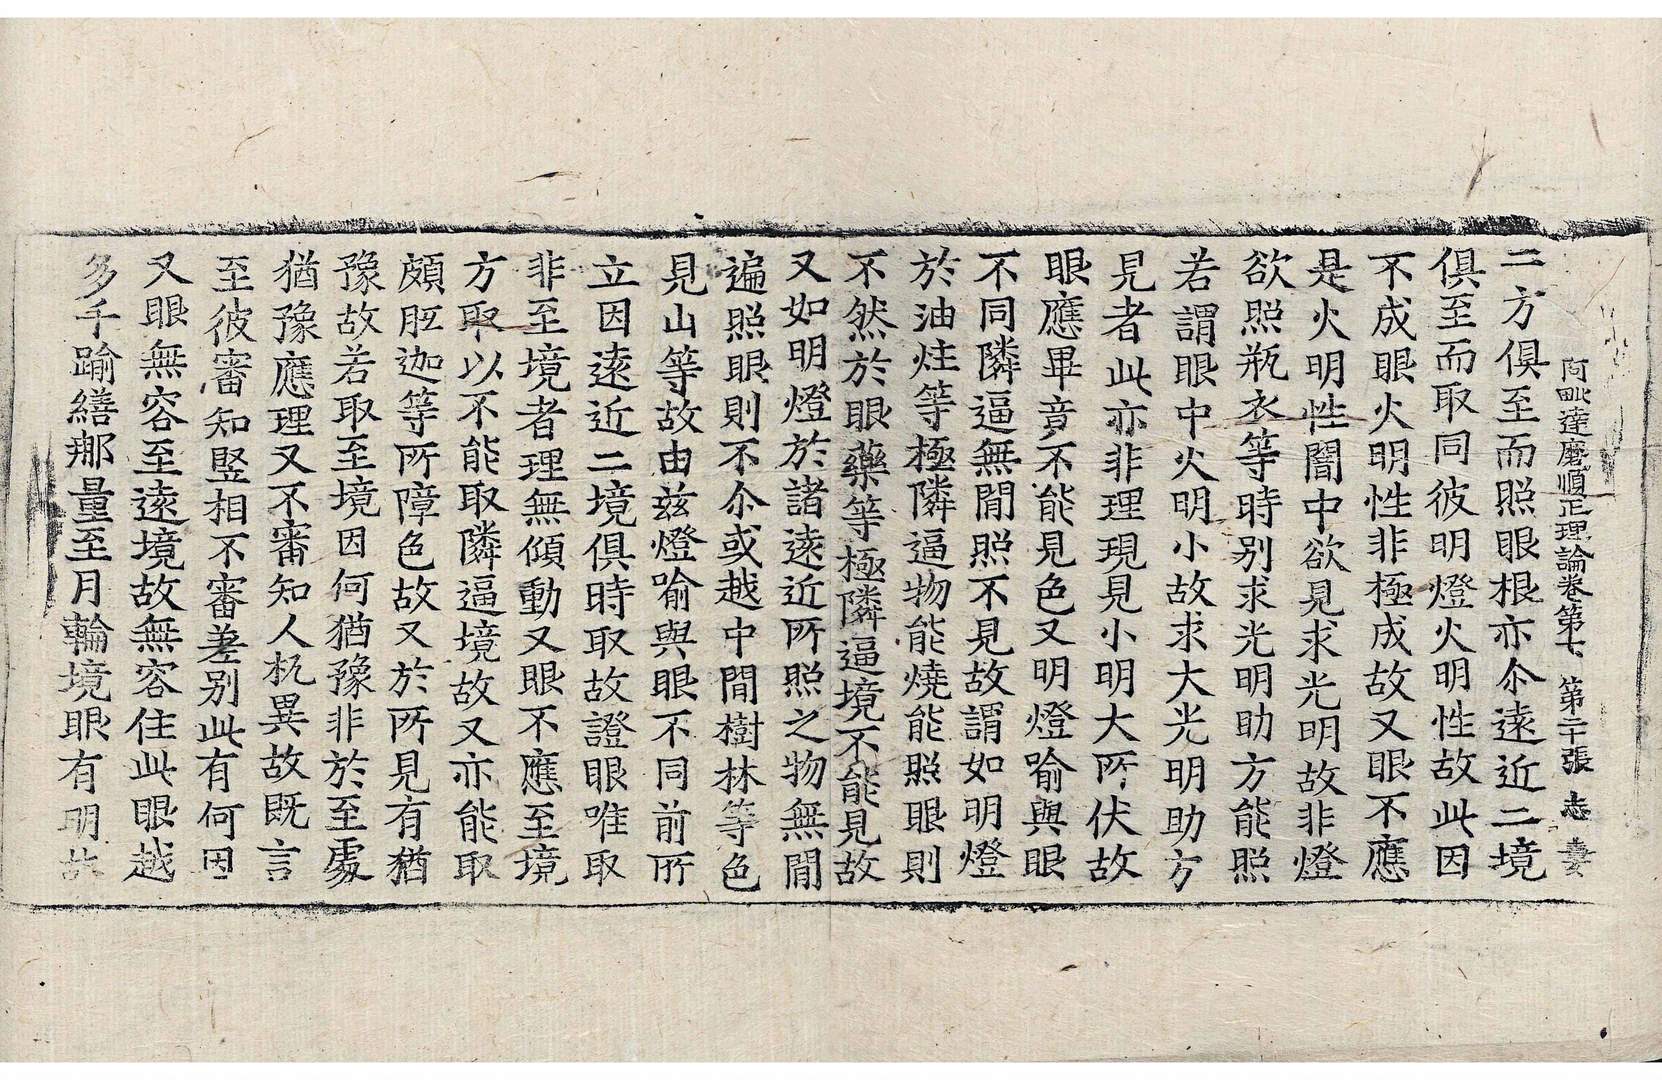 阿毗達磨順正理論卷第七 第二十張 志 妻
二方俱至而照眼根亦尒遠近二境
俱至而取同彼明燈火明性故此因
不成眼火明性非極成故又眼不應
是火明性闇中欲見求光明故非燈
欲照瓶衣等時别求光明助方能照
若謂眼中火明小故求大光明助方
見者此亦非理現見小明大所伏故
眼應畢竟不能見色又明燈喻與眼
不同隣逼無間照不見故謂如明燈
於油炷等極隣逼物能燒能照眼則
不然於眼藥等極隣逼境不能見故
又如明燈於諸遠近所照之物無間
遍照眼則不尒或越中間樹林等色
見山等故由兹燈喻與眼不同前所
立因遠近二境俱時取故證眼唯取
非至境者理無傾動又眼不應至境
方取以不能取隣逼境故又亦能取
頗胝迦等所障色故又於所見有猶
豫故若取至境因何猶豫非於至處
猶豫應理又不審知人杌異故既言
至彼審知竪相不審差别此有何因
又眼無容至遠境故無容住此眼越
多千踰繕那量至月輪境眼有明故